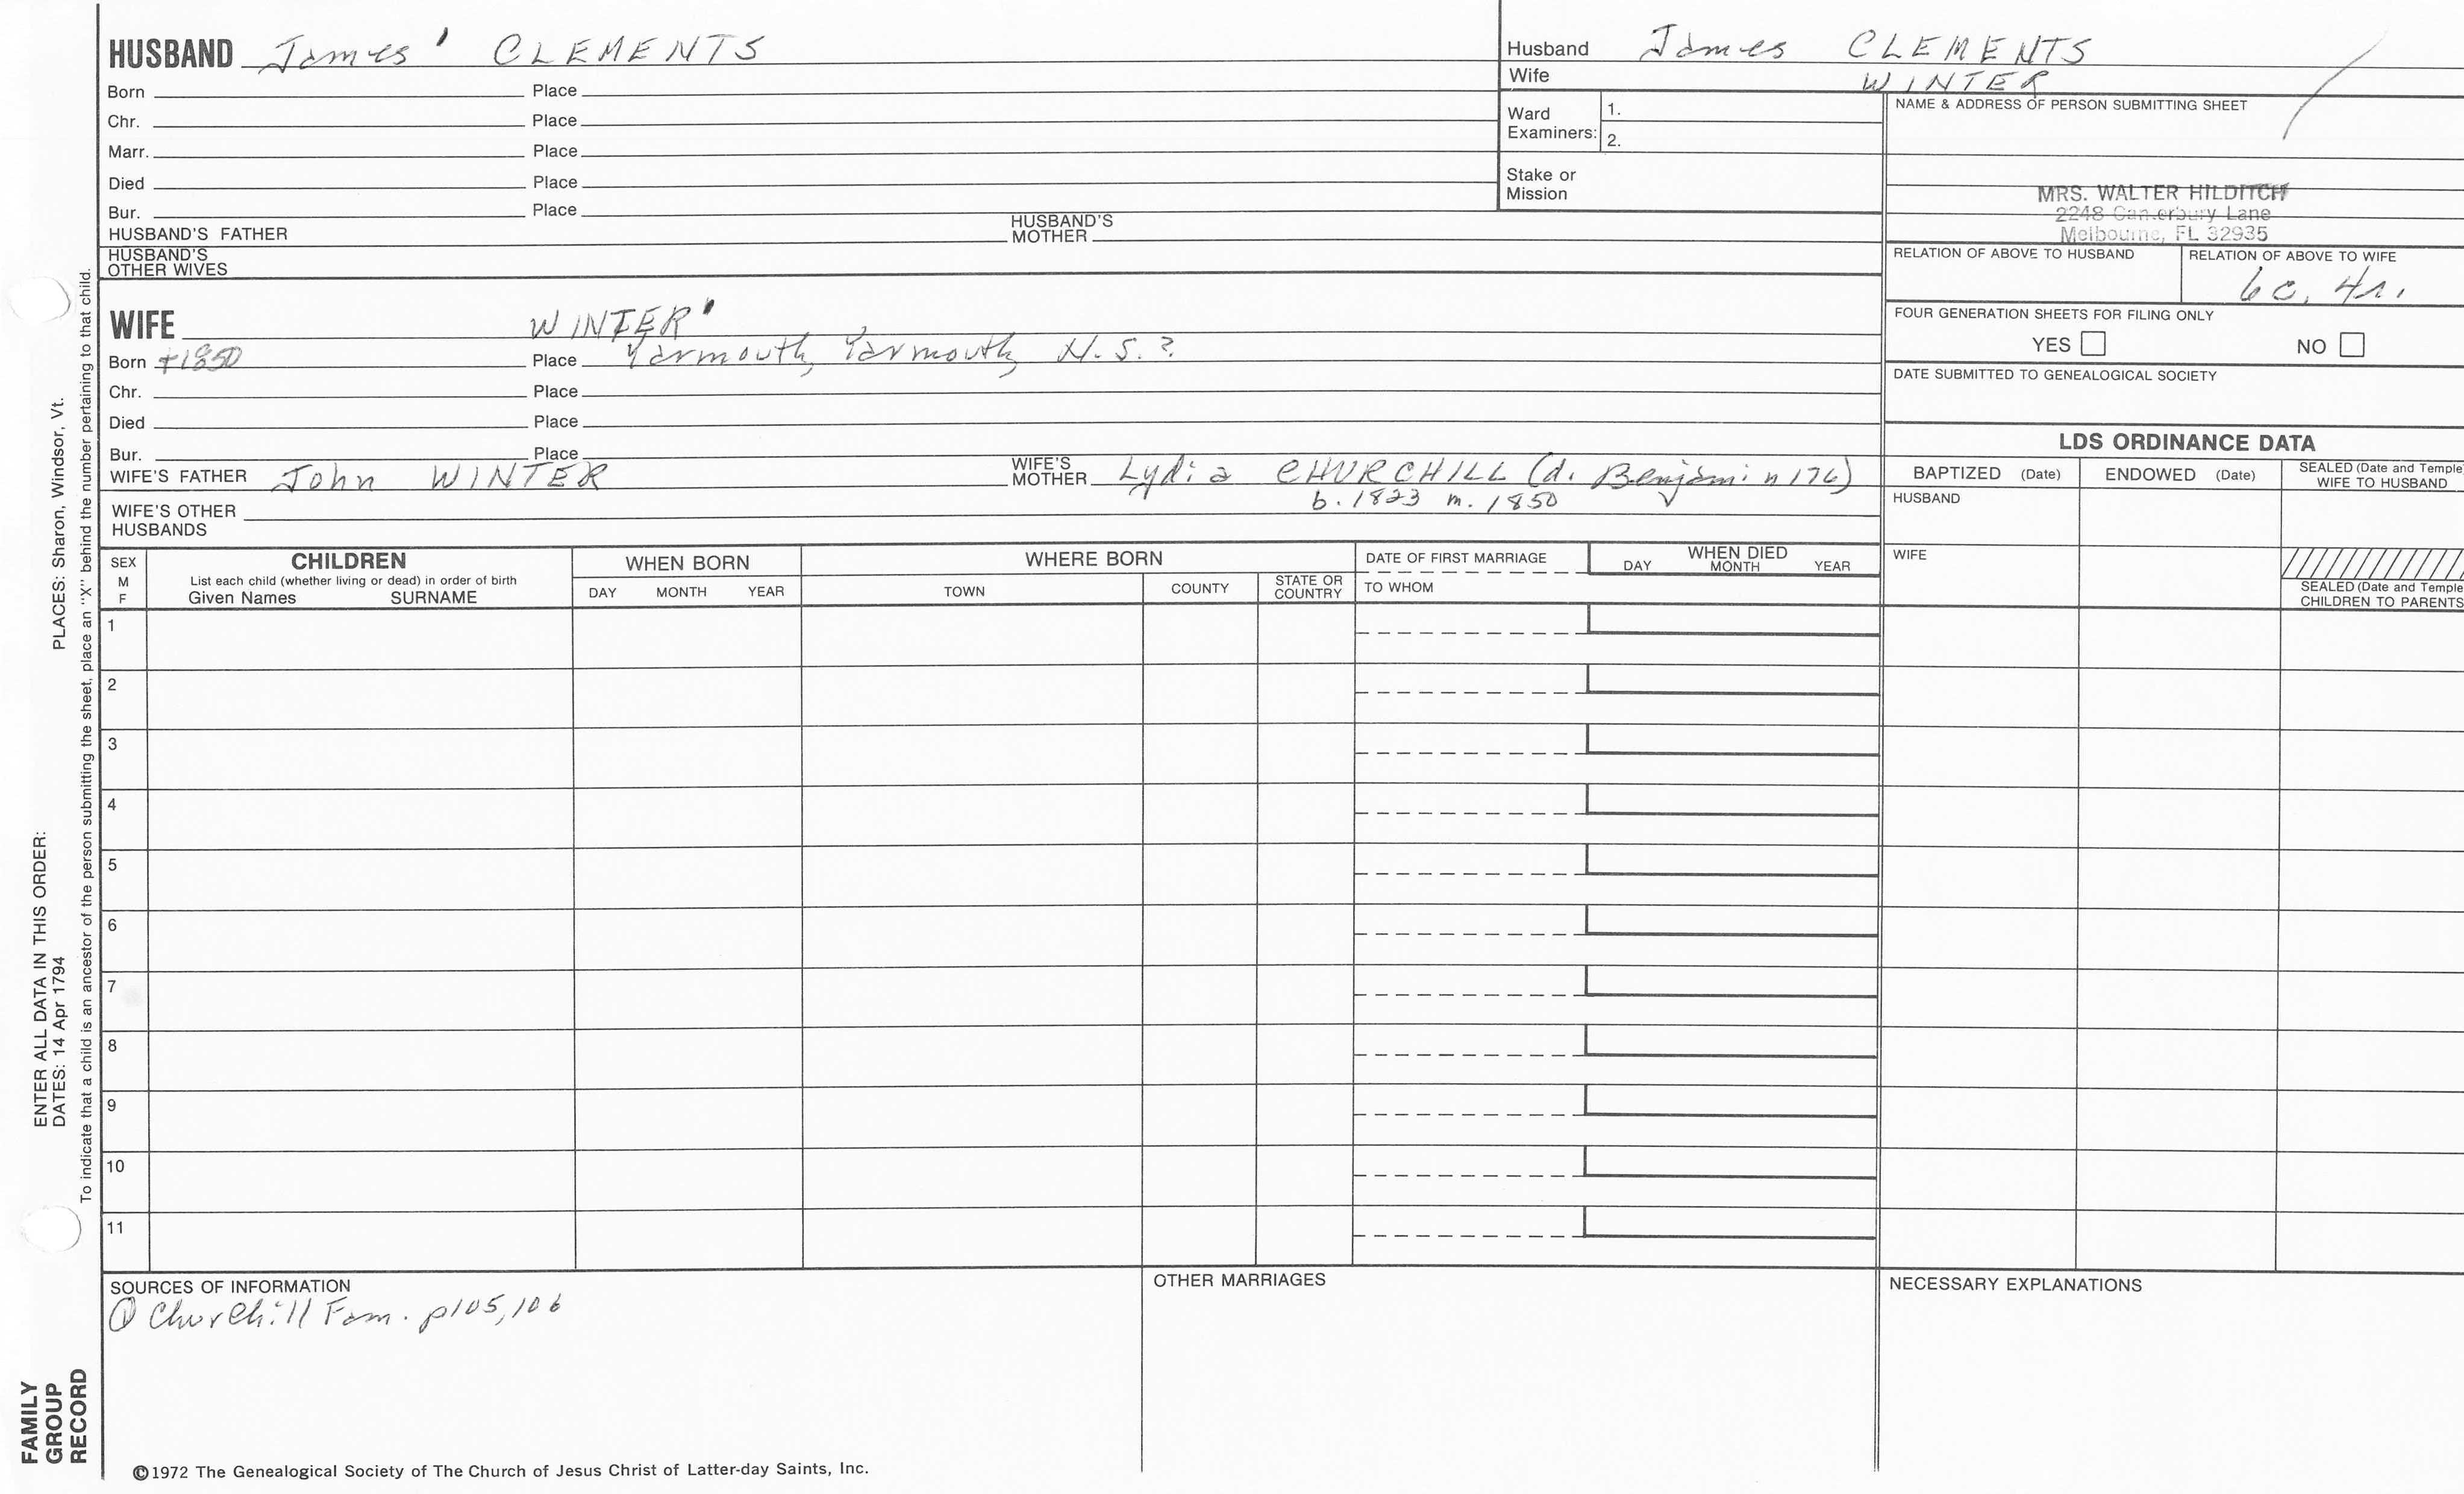 HUSBAND James ' CLEMENTS
Born Place
Chr. Place
Marr. Place
Died Place
Bur. Place
HUSBAND'S FATHER HUSBAND'S MOTHER
HUSBAND'S OTHER WIVES
Husband James CLEMENTS
Wife WINTER
Ward Examiners: 1.
2.
Stake or Mission
NAME & ADDRESS OF PERSON SUBMITTING SHEET
MRS. WALTER HILDITCH
2248 Canterbury Lane
Melbourne, FL 32935
RELATION OF ABOVE TO HUSBAND RELATION OF ABOVE TO WIFE
6c. 4r.
FOUR GENERATION SHEETS FOR FILING ONLY
YES NO
DATE SUBMITTED TO GENEALOGICAL SOCIETY
WIFE WINTER '
Born +1850 Place Yarmouth, Yarmouth, N.S.?
Chr. Place
Died Place
Bur. Place
WIFE'S FATHER John WINTER WIFE'S MOTHER Lydia CHURCHILL (d. Benjamin 176)
b. 1823 m. 1850
WIFE'S OTHER HUSBANDS
LDS ORDINANCE DATA
BAPTIZED (Date) ENDOWED (Date) SEALED (Date and Temple) WIFE TO HUSBAND
HUSBAND
WIFE
SEALED (Date and Temple CHILDREN TO PARENTS
SEX M F
CHILDREN
List each child (whether living or dead) in order of birth
Given Names SURNAME
WHEN BORN
DAY MONTH YEAR
WHERE BORN
TOWN COUNTY STATE OR COUNTRY
DATE OF FIRST MARRIAGE
TO WHOM
WHEN DIED
DAY MONTH YEAR
1
2
3
4
5
6
7
8
9
10
11
SOURCES OF INFORMATION
① Churchill Fam. p105,106
OTHER MARRIAGES
NECESSARY EXPLANATIONS
©1972 The Genealogical Society of The Church of Jesus Christ of Latter-day Saints, Inc.
FAMILY
GROUP
RECORD
ENTER ALL DATA IN THIS ORDER:
DATES: 14 Apr 1794 PLACES: Sharon, Windsor, Vt.
To indicate that a child is an ancestor of the person submitting the sheet, place an "X" behind the number pertaining to that child.